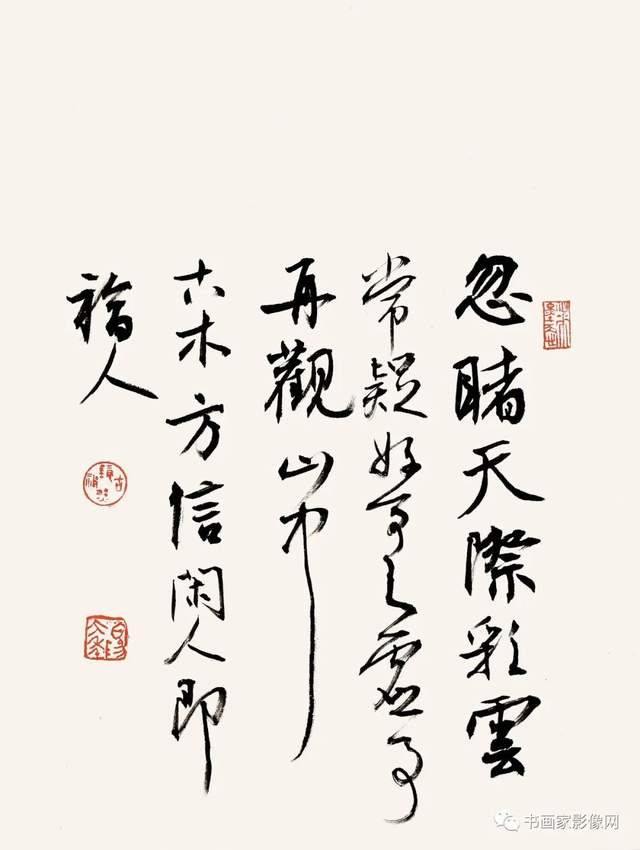 忽睹天際彩雲
常疑好事之虛事
再觀山中
古木方信閑人即
福人
书画家影像网